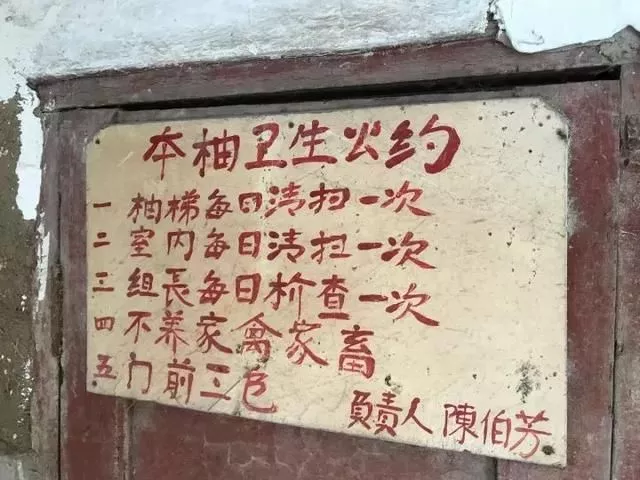 本柚卫生公约
一 柚梯每日清扫一次
二 室内每日清扫一次
三 组長每日检查一次
四 不养家禽家畜
五 门前三包
負責人 陳伯芳